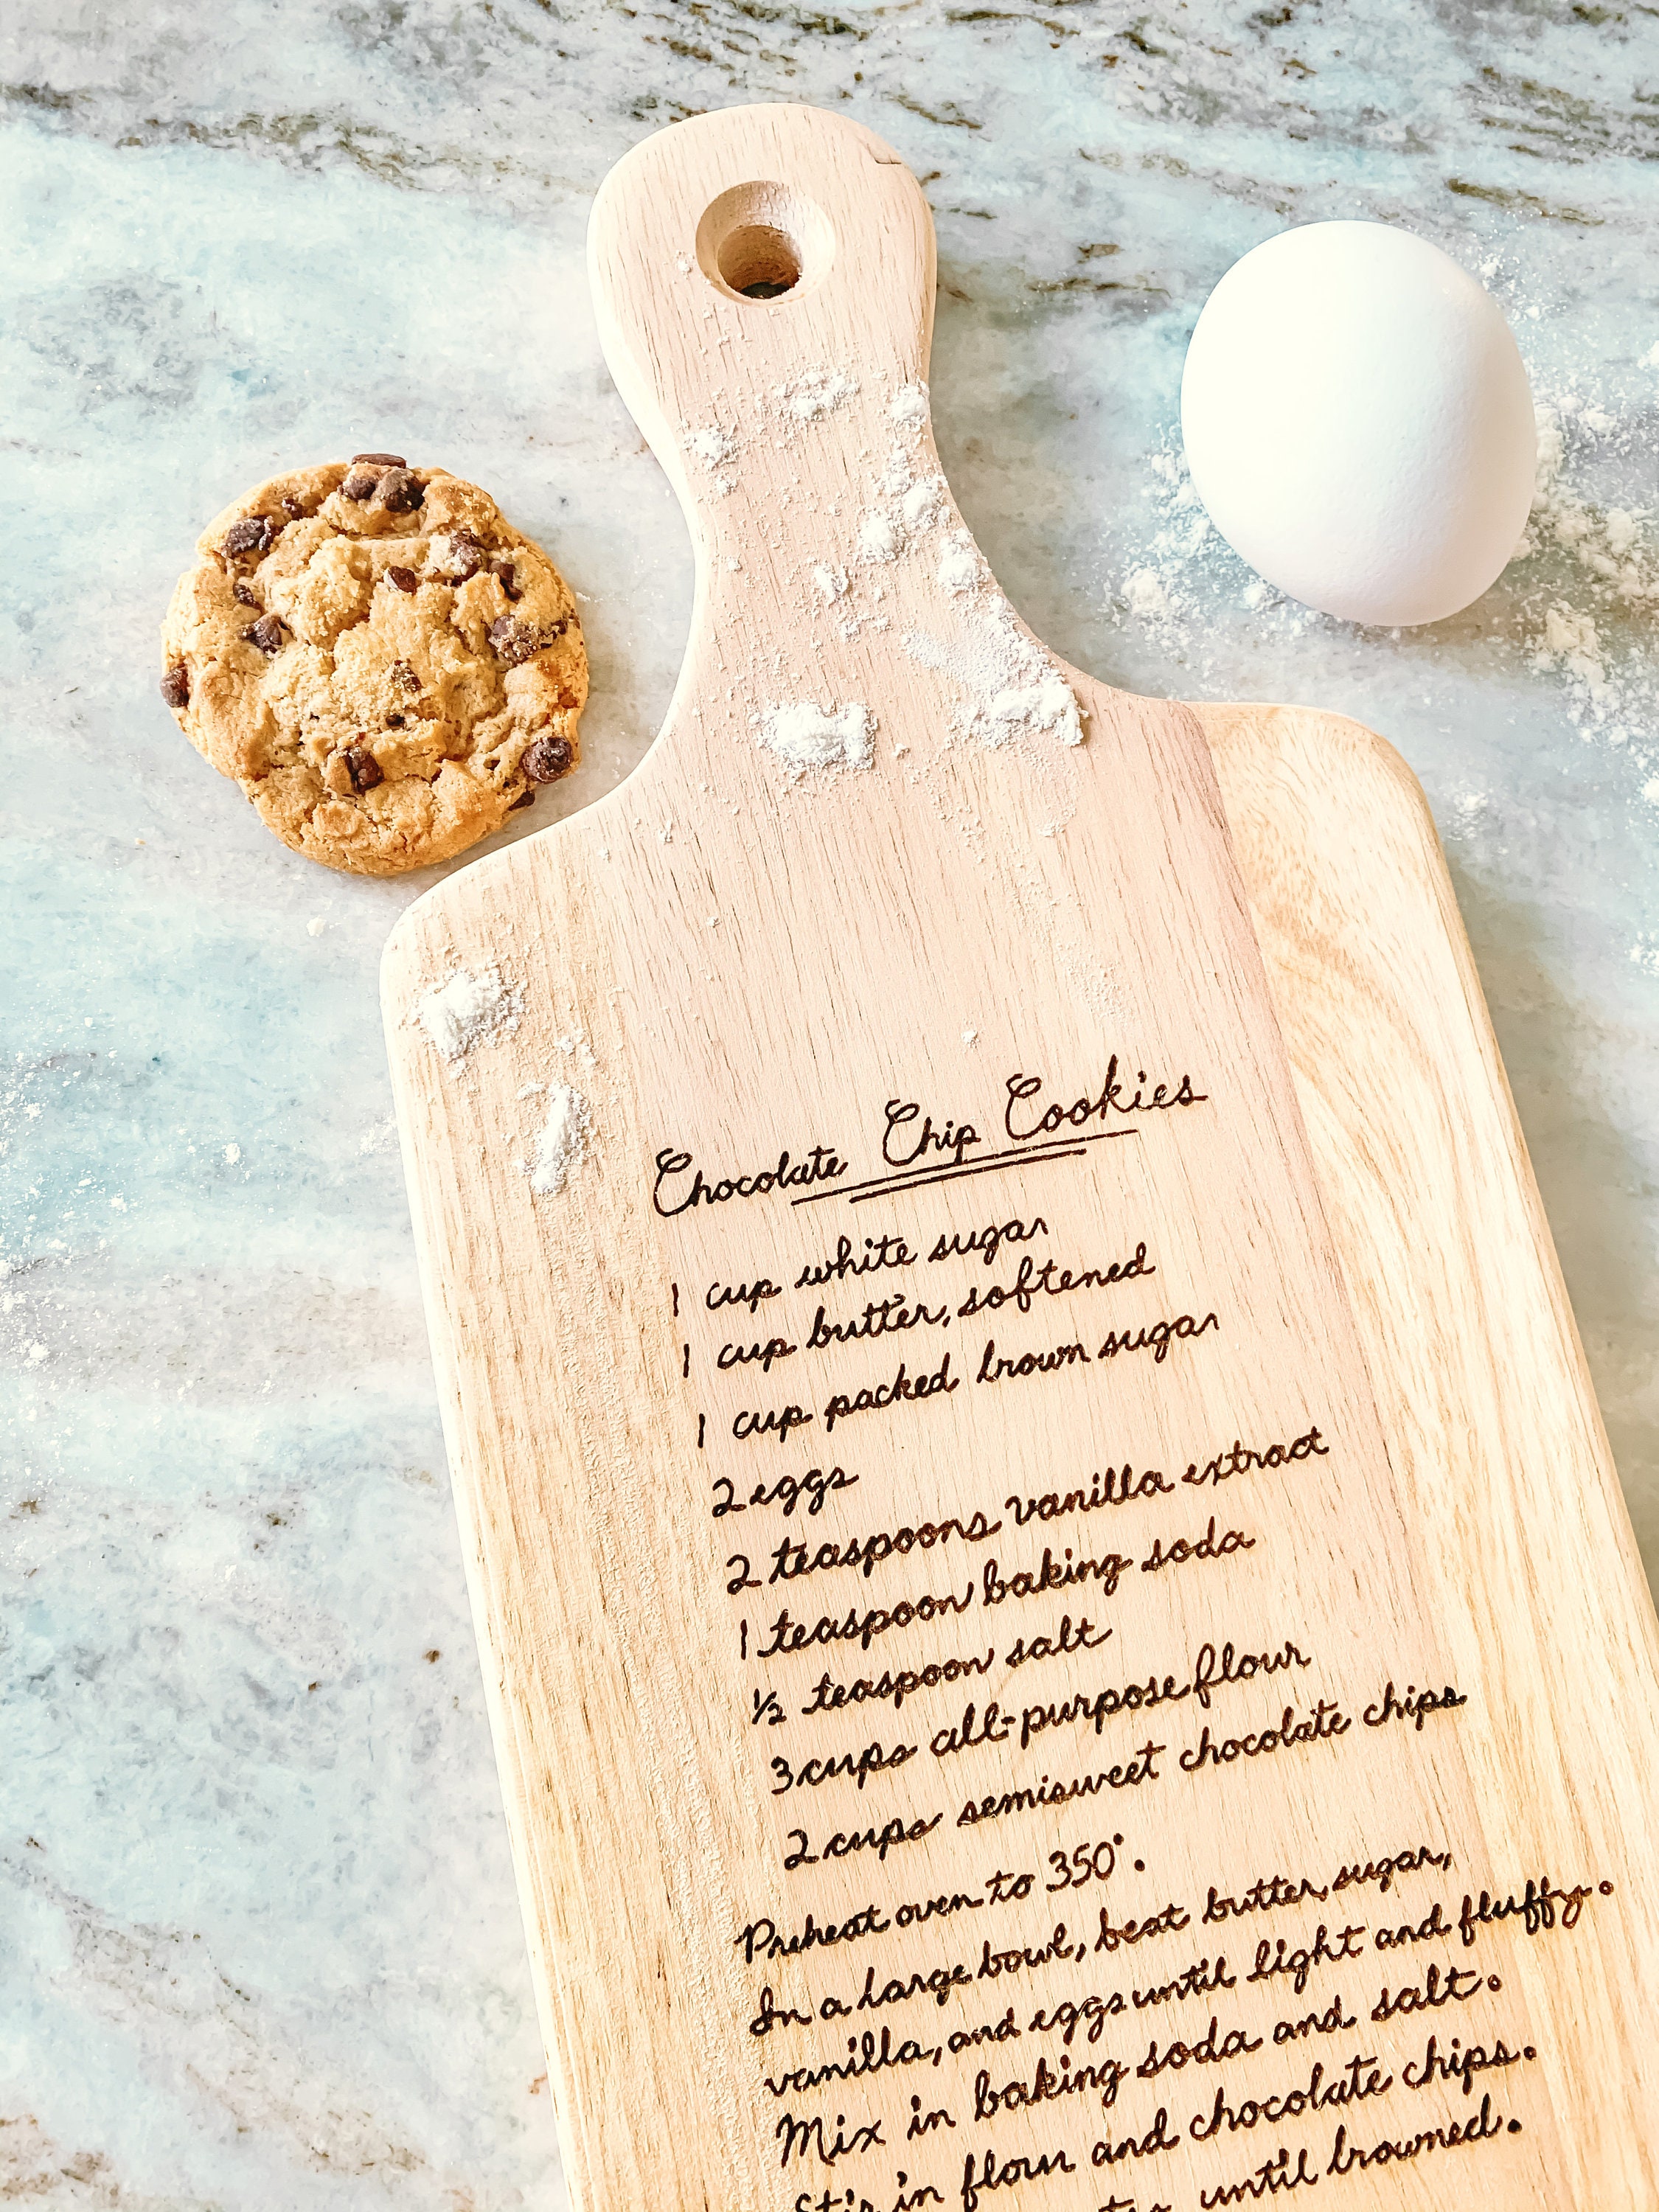 Chocolate Chip Cookies
1 cup white sugar
1 cup butter, softened
1 cup packed brown sugar
2 eggs
2 teaspoons vanilla extract
1 teaspoon baking soda
½ teaspoon salt
3 cups all-purpose flour
2 cups semisweet chocolate chips
Preheat oven to 350°.
In a large bowl, beat butter, sugar,
vanilla, and eggs until light and fluffy.
Mix in baking soda and salt.
Stir in flour and chocolate chips.
until browned.